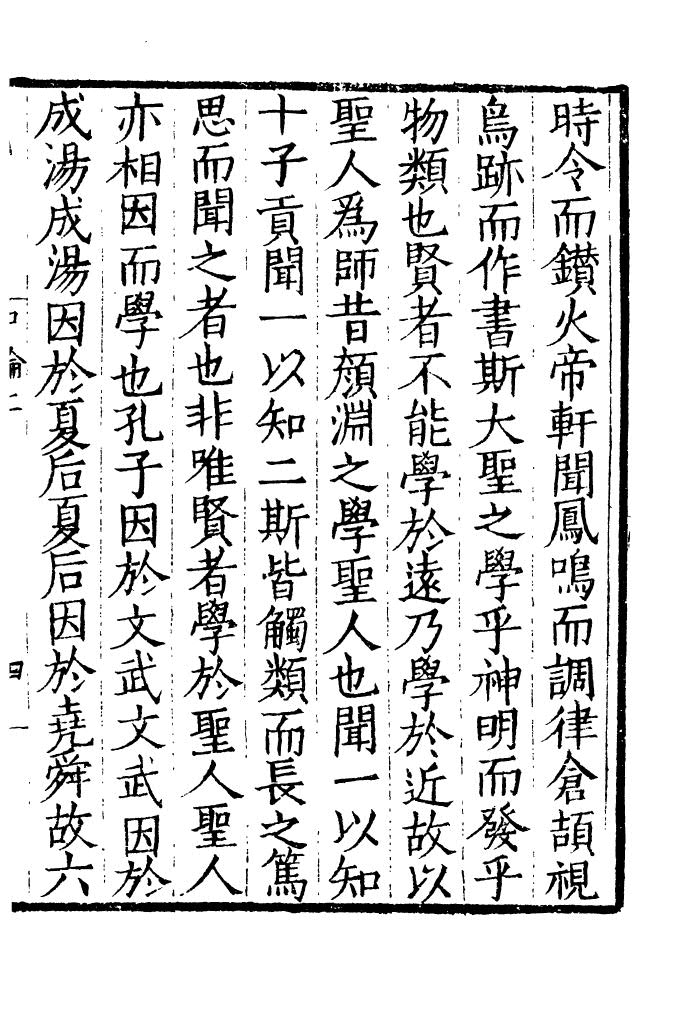 時令而鑚火帝軒聞鳳鳴而調律倉頡視
鳥跡而作書斯大聖之學乎神明而發乎
物類也賢者不能學於遠乃學於近故以
聖人爲師昔顏淵之學聖人也聞一以知
十子貢聞一以知二斯皆觸類而長之篤
思而聞之者也非唯賢者學於聖人聖人
亦相因而學也孔子因於文武文武因於
成湯成湯因於夏后夏后因於堯舜故六
論二
四